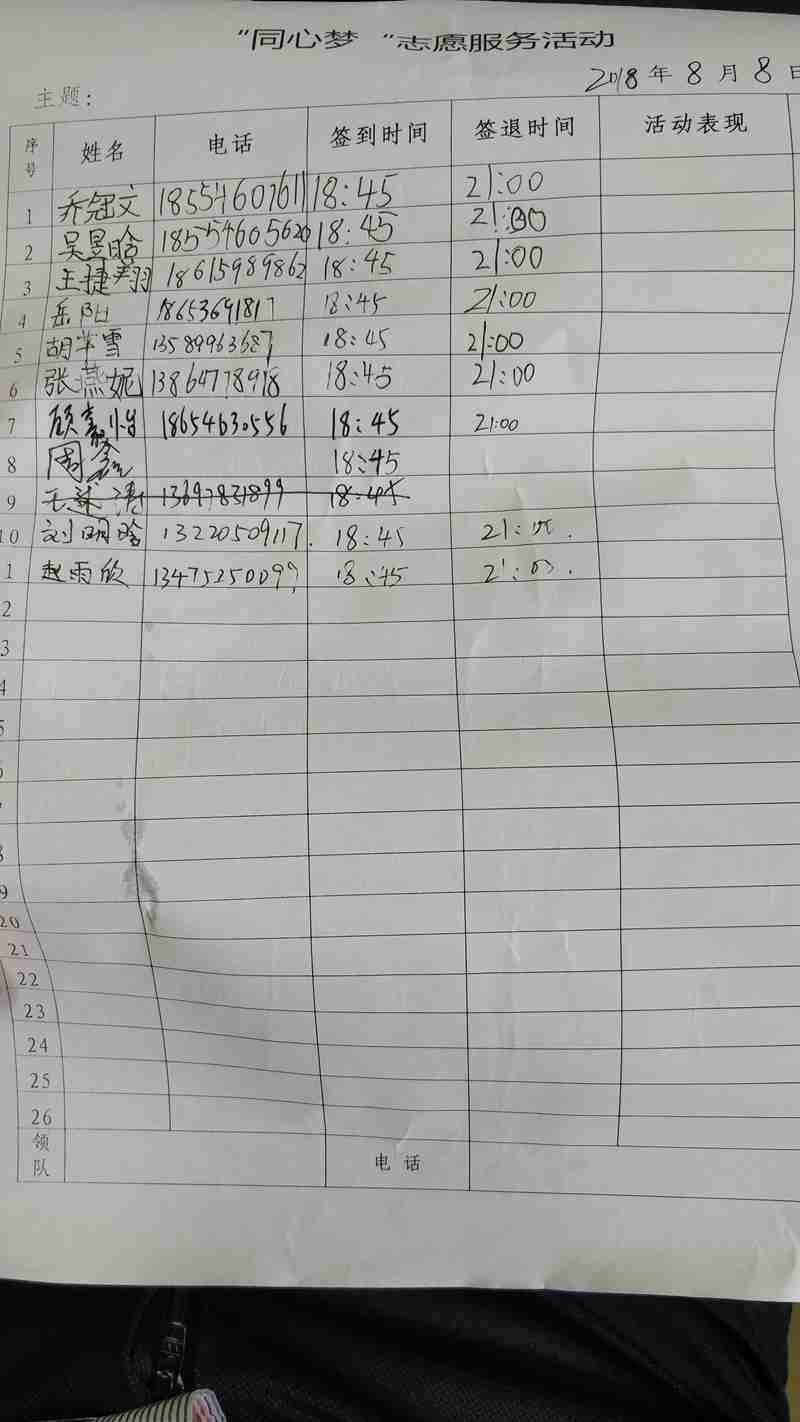 “同心梦 “志愿服务活动
2018 年 8 月 8 日
主题：
序号 姓名 电话 签到时间 签退时间 活动表现
1 乔冠文 18554607611 18:45 21:00
2 吴昱晗 18554605620 18:45 21:00
3 王捷翔 18615989862 18:45 21:00
4 岳阳 18653691817 18:45 21:00
5 胡芈雪 13589963687 18:45 21:00
6 张燕妮 13864778918 18:45 21:00
7 顾嘉怡 18654630556 18:45 21:00
8 周鑫 18:45
9 13697831899 18:45
10 刘明晗 13220509117. 18:45 21:00.
1 赵雨欣 13475250099 18:45 21:00.
2
3
4
5
6
7
8
9
20
21
22
23
24
25
26
领队 电 话